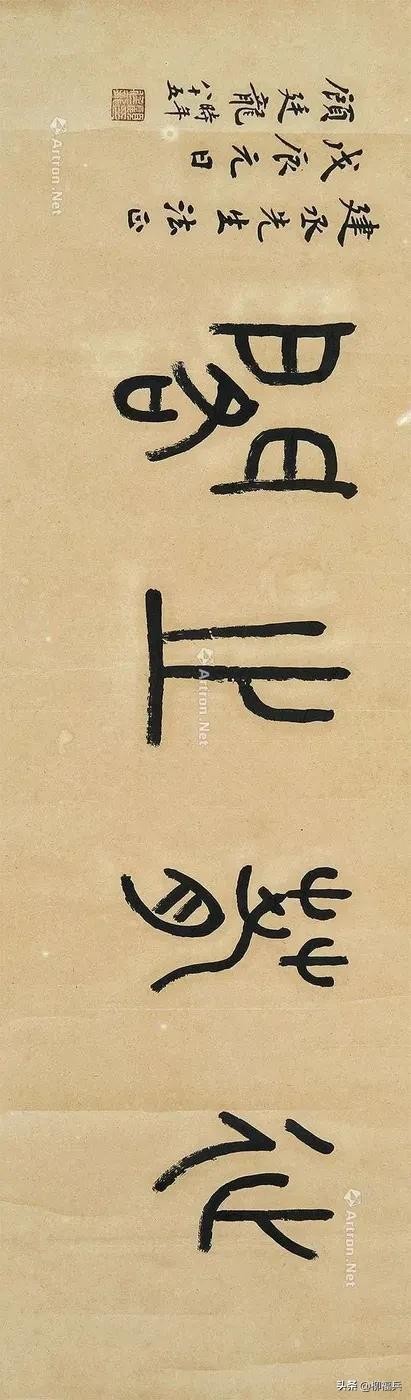 延之閣
建丞先生法正
戊辰元日
顧廷龍
時年八十五
Artron.Net
Artron.Net
Artron.Net
头条 @柳福兵